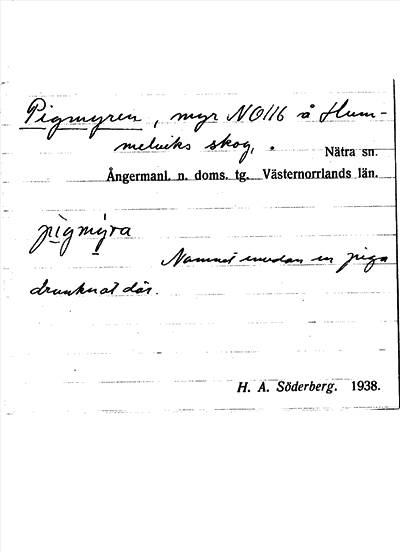 Pigmyren, myr NO/16 å Hum-
melviks skog,
Nätra sn.
Ångermanl. n. doms. tg. Västernorrlands län.
pigmyra
Namnet medan en piga
drunknat där.
H. A. Söderberg. 1938.